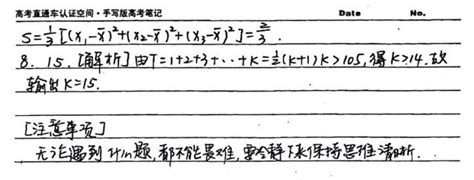 高考直通车认证空间·手写版高考笔记 Date No.
S=⅓[(x₁-x̄)²+(x₂-x̄)²+(x₃-x̄)²]=⅔.
8. 15. [解析] 由T=1+2+3+…+K=½(K+1)K>105,得K>14.故
输出K=15.
[注意事项]
无论遇到什么题,都不能畏难,要冷静下来保持思维清晰.